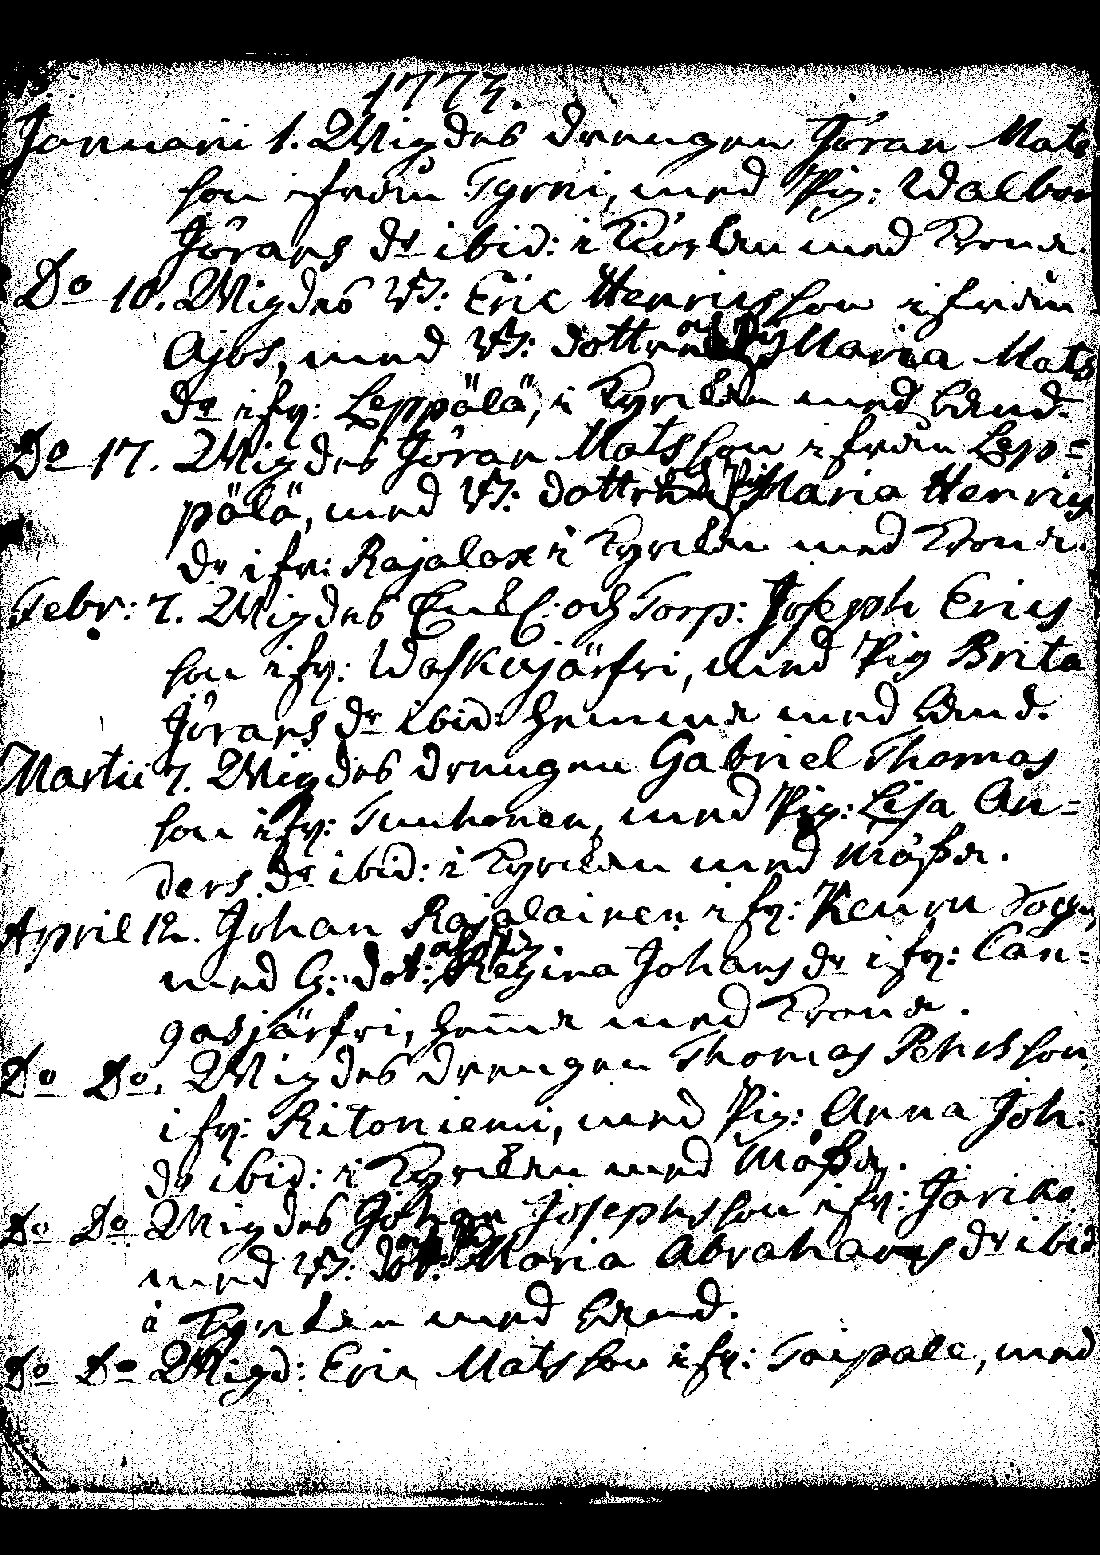 1773.
Januarii 1. Wigdes drengen Jöran Mats
son ifrån Tyrni, med Pig: Walbor
Jörans dr ibid: i Kiörkan med Krona
Do 10. Wigdes B: Eric Henricsson ifrån
Ajos, med B: dottren Maria Mats
dr ifr: Leppälä, i Kyrckan med band.
Do 17. Wigdes Jöran Matsson ifrån Lep=
pälä, med B: dottren Maria Henrics
dr ifr: Rajalax i Kyrckan med Krona.
Febr: 7. Wigdes Enkl: och Torp: Joseph Erics
son ifr: Waskojärfvi, med Pig Brita
Jörans dr ibid: hemma med band.
Martii 7. Wigdes drengen Gabriel Thomas
son ifr: Tunhonen, med Pig: Lisa An=
ders dr ibid: i Kyrckan med Mössa.
April 12. Johan Rajalainen ifr: Kemi Sogn,
med B: dot: Regina Johans dr ifr: Can=
gasjärfvi, hema med Krona.
Do Do. Wigdes drengen Thomas Pehrsson,
ifr: Ritoniemi, med Pig: Anna Joh:
dr ibid: i Kyrckan med Mössa.
Do Do Wigdes Johan Josephsson ifr: Joriko
med B: dot: Maria Abrahams dr ibid
i Kyrckan med band.
Do Do Wigd: Eric Matsson ifr: Taipale, med